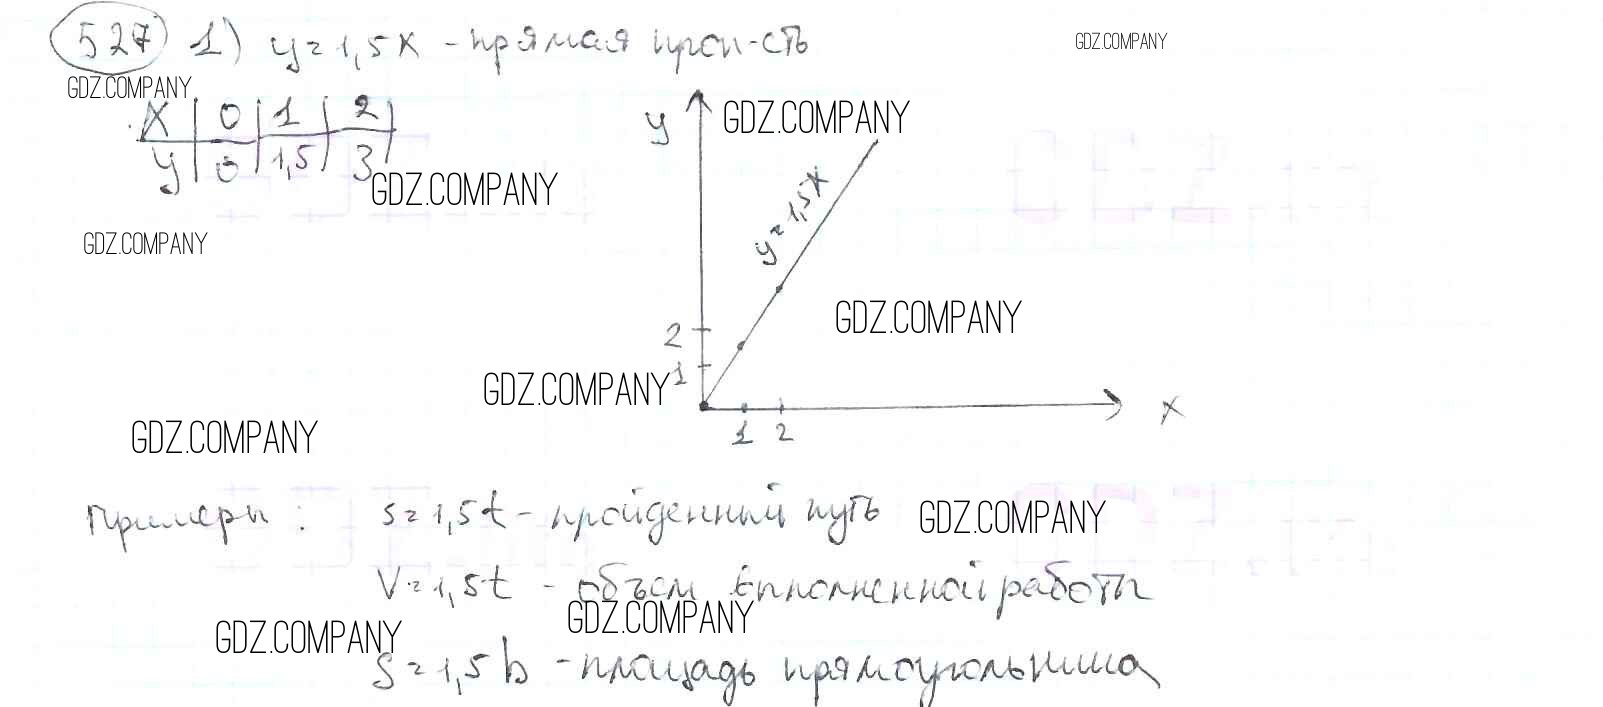 527 1) y=1,5x - прямая проп-сть
GDZ.COMPANY
GDZ.COMPANY
x 0 1 2
y 0 1,5 3
GDZ.COMPANY
GDZ.COMPANY
y
GDZ.COMPANY
y=1,5x
2
GDZ.COMPANY
1
GDZ.COMPANY
x
1 2
GDZ.COMPANY
Примеры: s=1,5t - пройденный путь
GDZ.COMPANY
V=1,5t - объем выполненной работы
GDZ.COMPANY
GDZ.COMPANY
S=1,5b - площадь прямоугольника